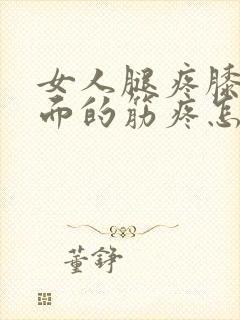 女人腿疼膝
而的筋疼怎
董铮